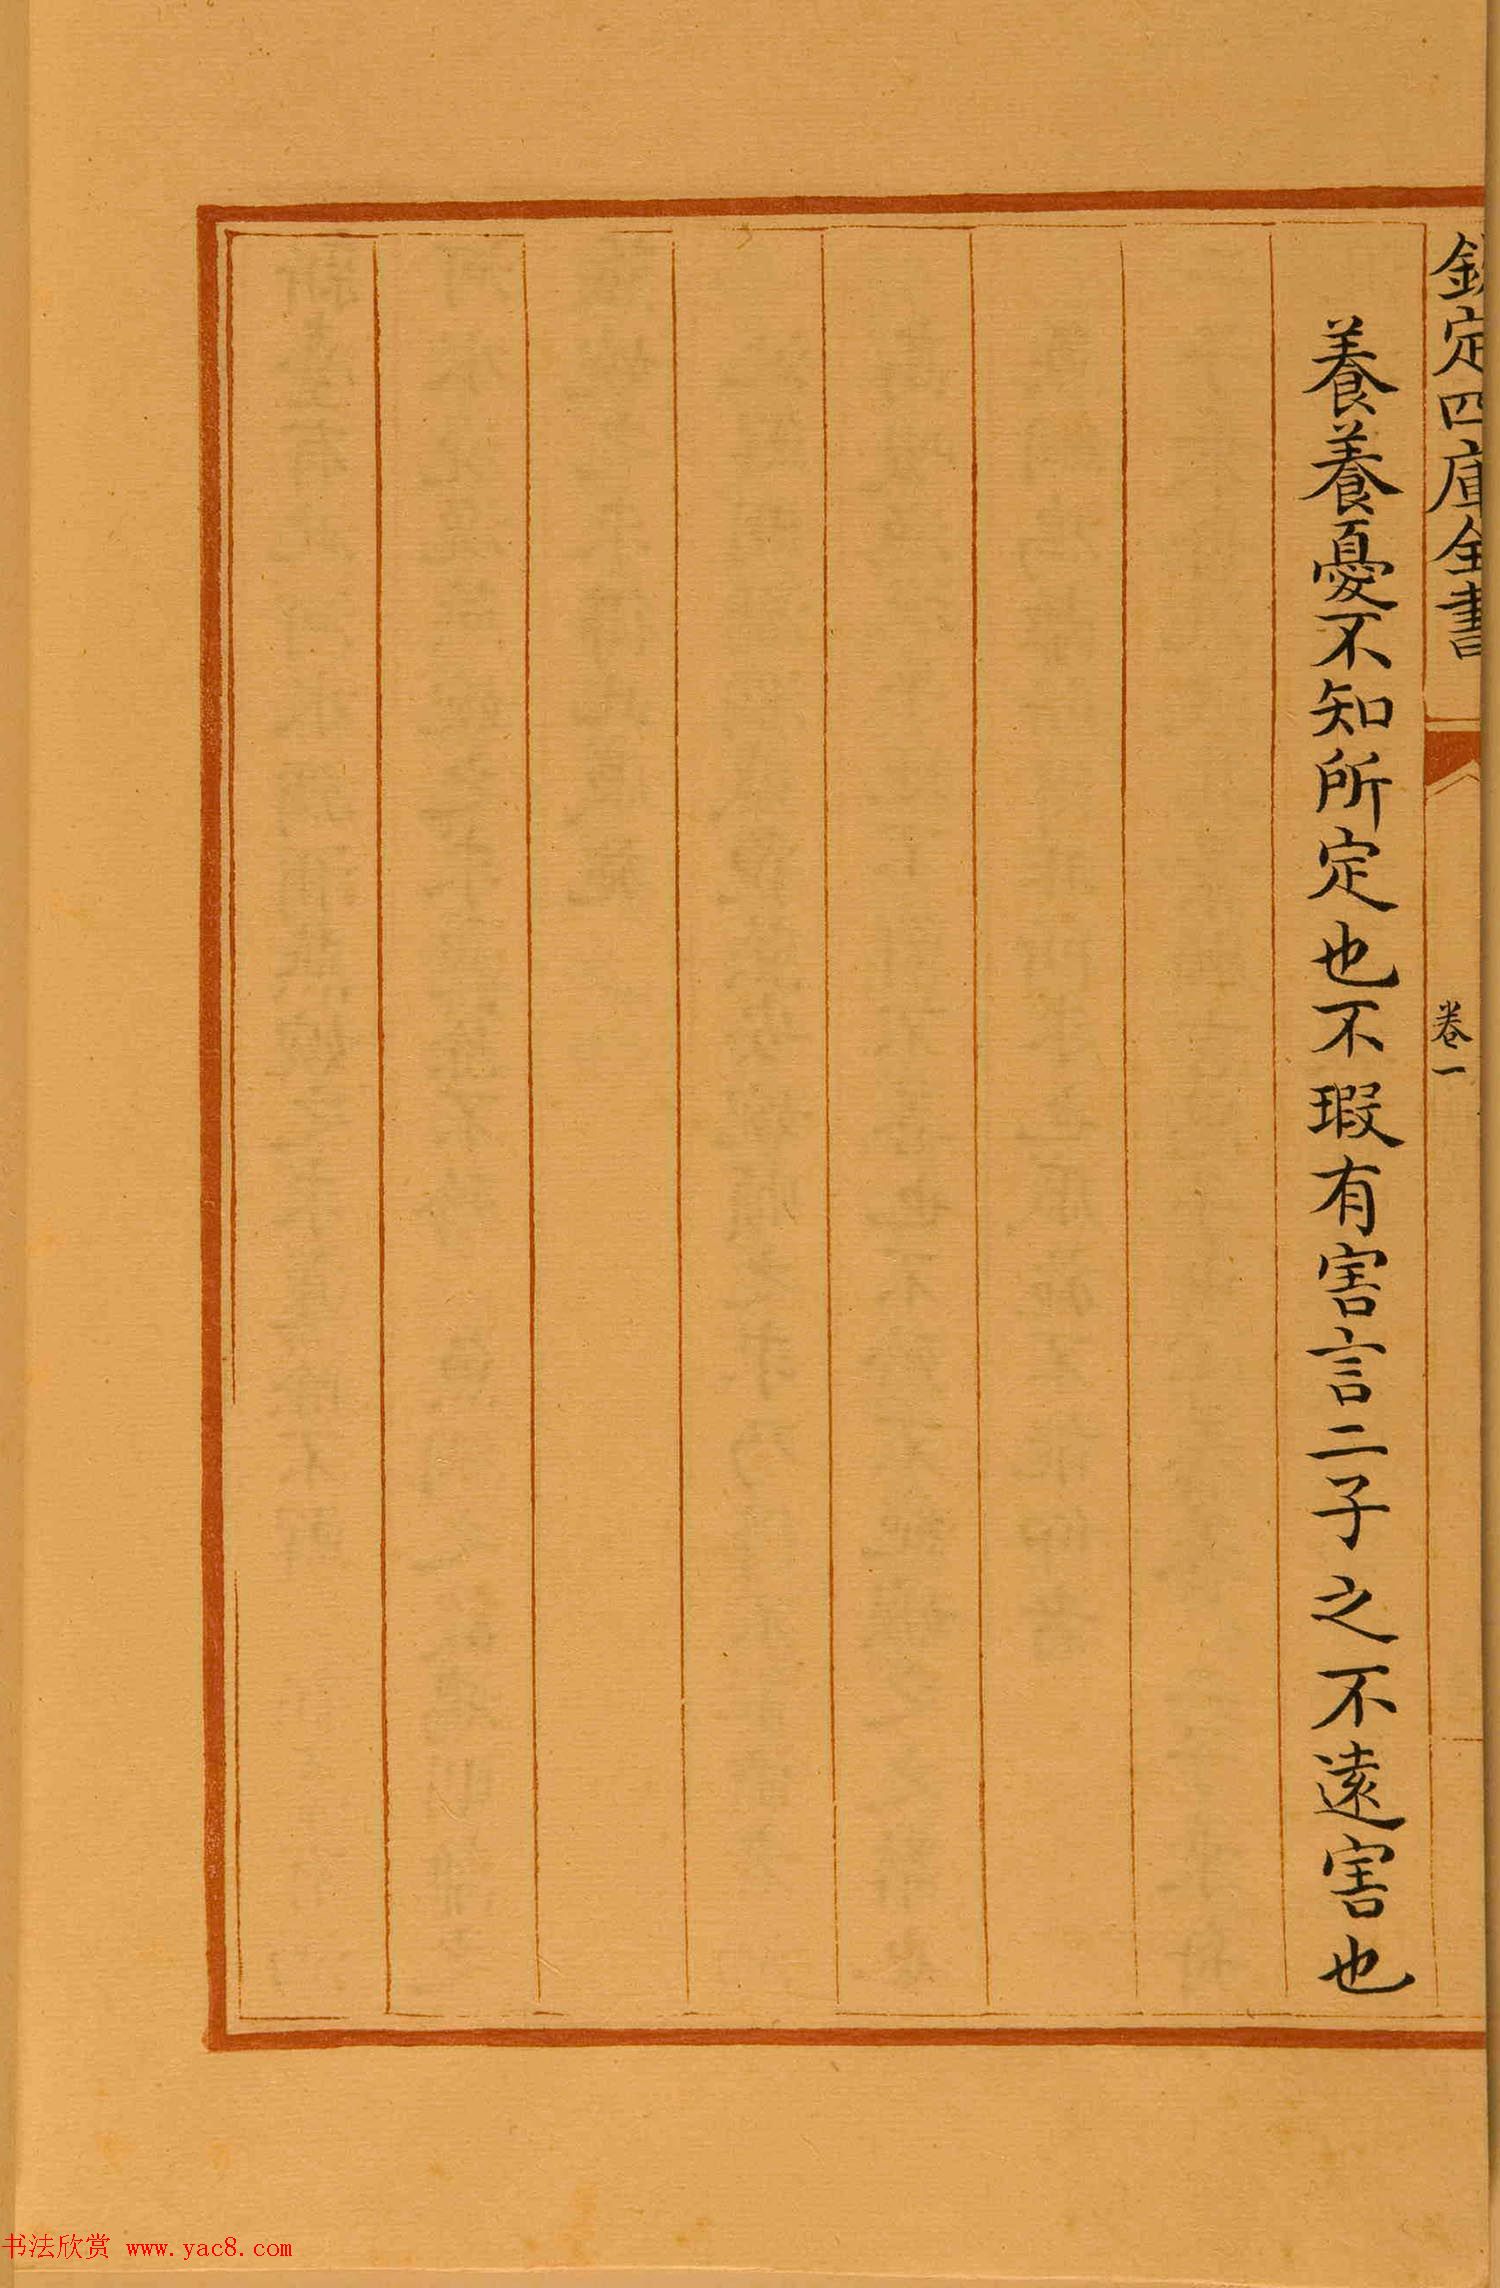 欽定四庫全書
卷一
養養憂不知所定也不瑕有害言二子之不遠害也
书法欣赏 www.yac8.com